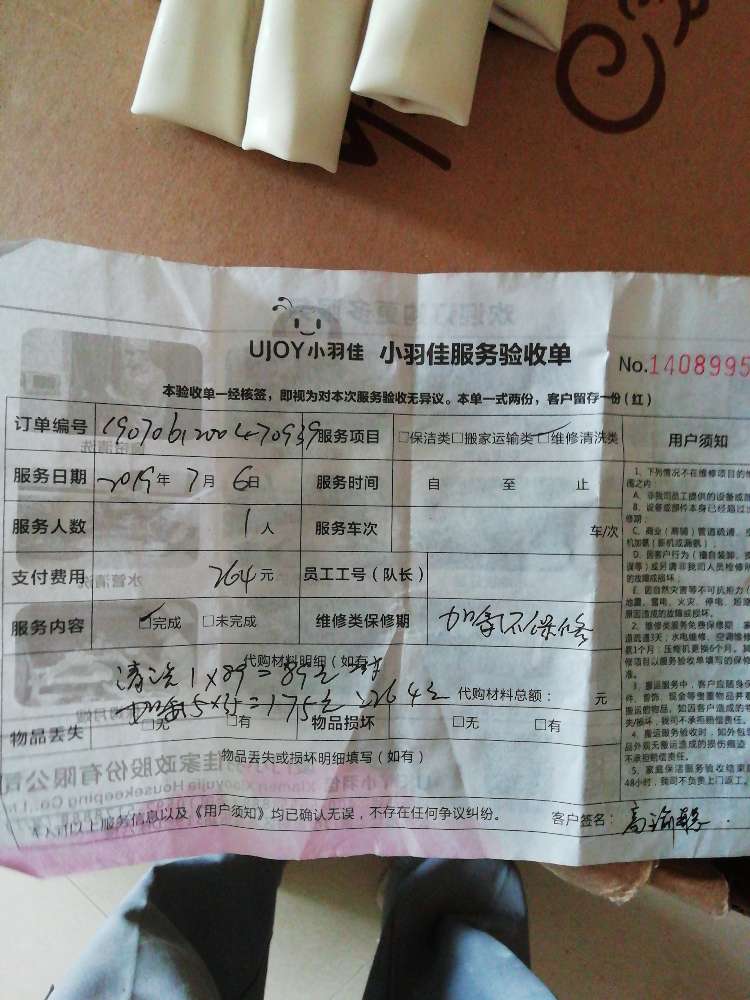 UJOY小羽佳 小羽佳服务验收单
No.1408995
本验收单一经核签，即视为对本次服务验收无异议。本单一式两份，客户留存一份（红）
订单编号 服务项目 □保洁类□搬家运输类□维修清洗类 用户须知
服务日期 2019年7月6日 服务时间 自 至 止
服务人数 1人 服务车次 车/次
支付费用 264元 员工工号（队长）
服务内容 □完成 □未完成 维修类保修期 加氟不保修
代购材料明细（如有）
清洗1×89=89元
加氟5×35=175元 264元 代购材料总额： 元
物品丢失 □无 □有 物品损坏 □无 □有
物品丢失或损坏明细填写（如有）
本人对以上服务信息以及《用户须知》均已确认无误，不存在任何争议纠纷。 客户签名：
1、下列情况不在维修项目的
A、非我司员工提供的设备或
B、设备或部件本身已经超过
修期
C、商业（商铺）管道疏通、
机加氟（新机或漏氟）
D、因客户行为（擅自装卸、
误等）或另请非我司人员检修
的故障或损坏；
E、因自然灾害等不可抗拒力（
地震、雷电、火灾、停电、
原因造成的故障或损坏。
2、维修类服务免费保修期：
道疏通3天；水电维修、空调维
1个月；压缩机更换6个月。
修项目以服务验收单填写的保修
准。
3、搬运服务中，客户应随身保
件、首饰、现金等贵重物品并
搬运的物品，如因客户造成的
失/损坏，我司不承担赔偿责任。
4、搬运服务验收时，如外包
品外观无搬运造成的损伤痕迹
不承担赔偿责任。
5、家庭保洁服务验收结束
48小时，我司不负责上门返工。